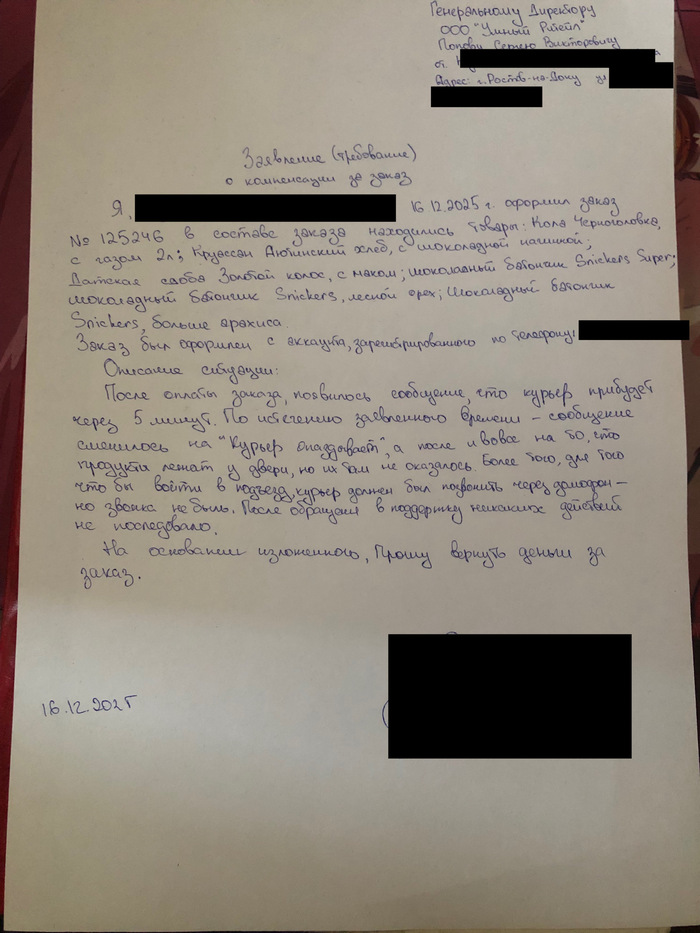 Генеральному Директору
ООО "Умный Ритейл"
Попову Сергею Викторовичу
от.
Адрес: г. Ростов-на-Дону ул
Заявление (требование)
о компенсации за заказ
Я, 16.12.2025 г. оформил заказ
№ 125246 в составе заказа находились товары: Кола Черноголовка,
с газом 2л; Круассан Аютинский хлеб, с шоколадной начинкой;
Датская сдоба Золотой колос, с маком; шоколадный батончик Snickers Super;
шоколадный батончик Snickers, лесной орех; Шоколадный батончик
Snickers, больше арахиса.
Заказ был оформлен с аккаунта, зарегистрированного по телефону:
Описание ситуации:
После оплаты заказа, появилось сообщение, что курьер прибудет
через 5 минут. По истечению заявленного времени – сообщение
сменилось на "Курьер опаздывает", а после и вовсе на то, что
продукты лежат у двери, но их там не оказалось. Более того, для того
что бы войти в подъезд, курьер должен был позвонить через домофон –
но звонка не был. После обращения в поддержку никаких действий
не последовало.
На основании изложенного, Прошу вернуть деньги за
заказ.
16.12.2025